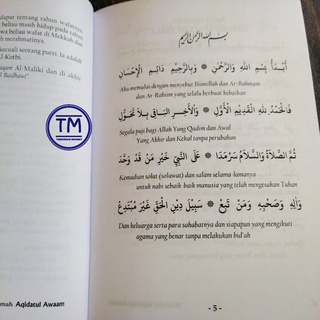 dapat rentang tahun wafatnya
beliau masih hidup pada tahun
beliau wafat di Mekkah dan
merahmatinya.
kecuali seorang putri. Ia adalah
Al-Kutbi.
Al-Maliki dan di akhir
Baidhowi"
TM
بسم الله الرحمن الرحيم
أَبْدَأُ بِسْمِ اللهِ وَالرَّحْمٰنِ ۞ وَبِالرَّحِيْمِ دَائِمِ الْإِحْسَانِ
Aku memulai dengan menyebut Bismillah dan Ar-Rahmani
dan Ar-Rahim yang selalu berbuat kebaikan
فَالْحَمْدُ لِلّٰهِ الْقَدِيْمِ الْأَوَّلِ ۞ وَالْآخِرِ الْبَاقِيْ بِلَا تَحَوُّلِ
Segala puji bagi Allah Yang Qadim dan Awal
Yang Akhir dan Kekal tanpa perubahan
ثُمَّ الصَّلَاةُ وَالسَّلَامُ سَرْمَدَا ۞ عَلَى النَّبِيِّ خَيْرِ مَنْ قَدْ وَحَّدَا
Kemudian solat (solawat) dan salam selama-lamanya
untuk nabi sebaik-baik manusia yang telah mengesakan Tuhan
وَآلِهِ وَصَحْبِهِ وَمَنْ تَبِعْ ۞ سَبِيْلَ دِيْنِ الْحَقِّ غَيْرَ مُبْتَدِعْ
Dan keluarga serta para sahabatnya dan siapapun yang mengikuti
agama yang benar tanpa melakukan bid'ah
mah Aqidatul Awaam
- 5 -